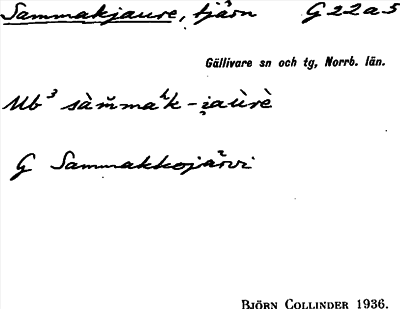 Sammakjaure, tjärn G22a5
Gällivare sn och tg, Norrb. län.
Ub³ sàm̆maʰk-i̯aùrè
G Sammakkojärvi
BJÖRN COLLINDER 1936.